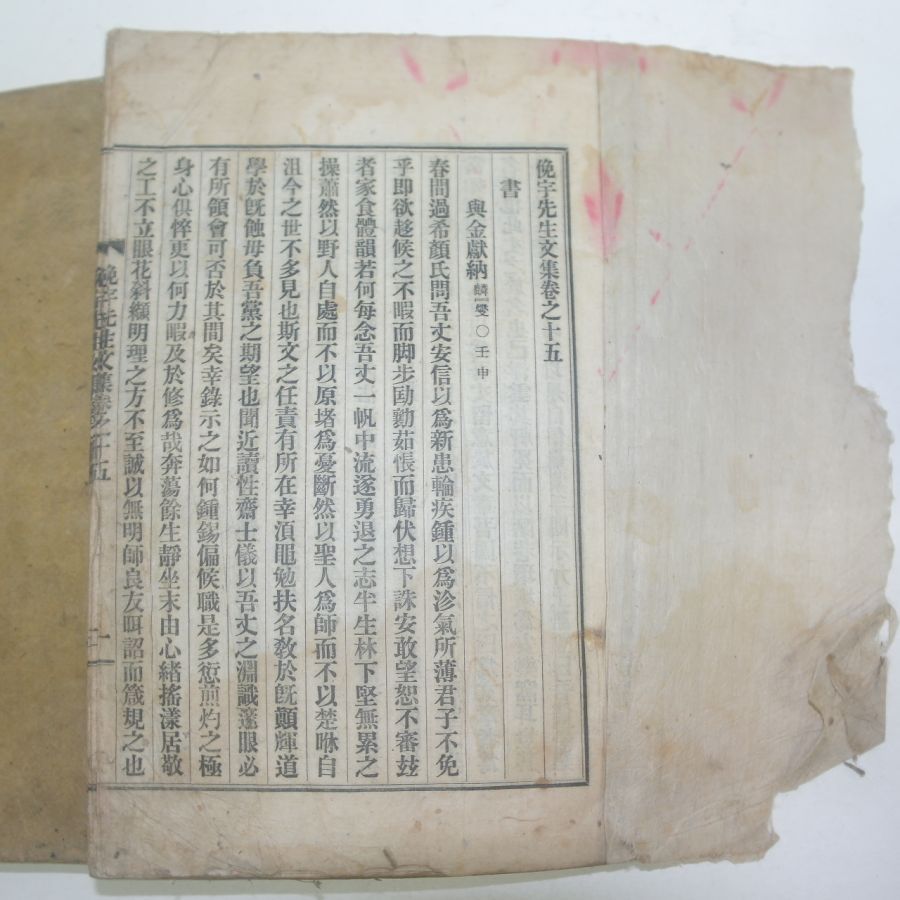 俛宇先生文集卷之十五
書
與金獻納 麟燮 ○壬申
春間過希顏氏問吾丈安信以爲新患輪疾鍾以爲沴氣所薄君子不免
乎即欲趍候之不暇而脚步劻勷茹悵而歸伏想下誅安敢望恕不審玆
者家食體韻若何每念吾丈一帆中流遂勇退之志半生林下堅無累之
操蕭然以野人自處而不以原堵爲憂斷然以聖人爲師而不以楚咻自
沮今之世不多見也斯文之任責有所在幸湏黽勉扶名敎於旣顚輝道
學於旣蝕毋負吾黨之期望也聞近讀性齋士儀以吾丈之淵識邃眼必
有所領會可否於其間矣幸錄示之如何鍾錫偏候職是多愆煎灼之極
身心俱悴更以何力暇及於修爲哉奔蕩餘生靜坐末由心緒搖漾居敬
之工不立眼花斜纈明理之方不至誠以無明師良友㗖詔而箴規之也
俛宇先生文集卷之十五
一